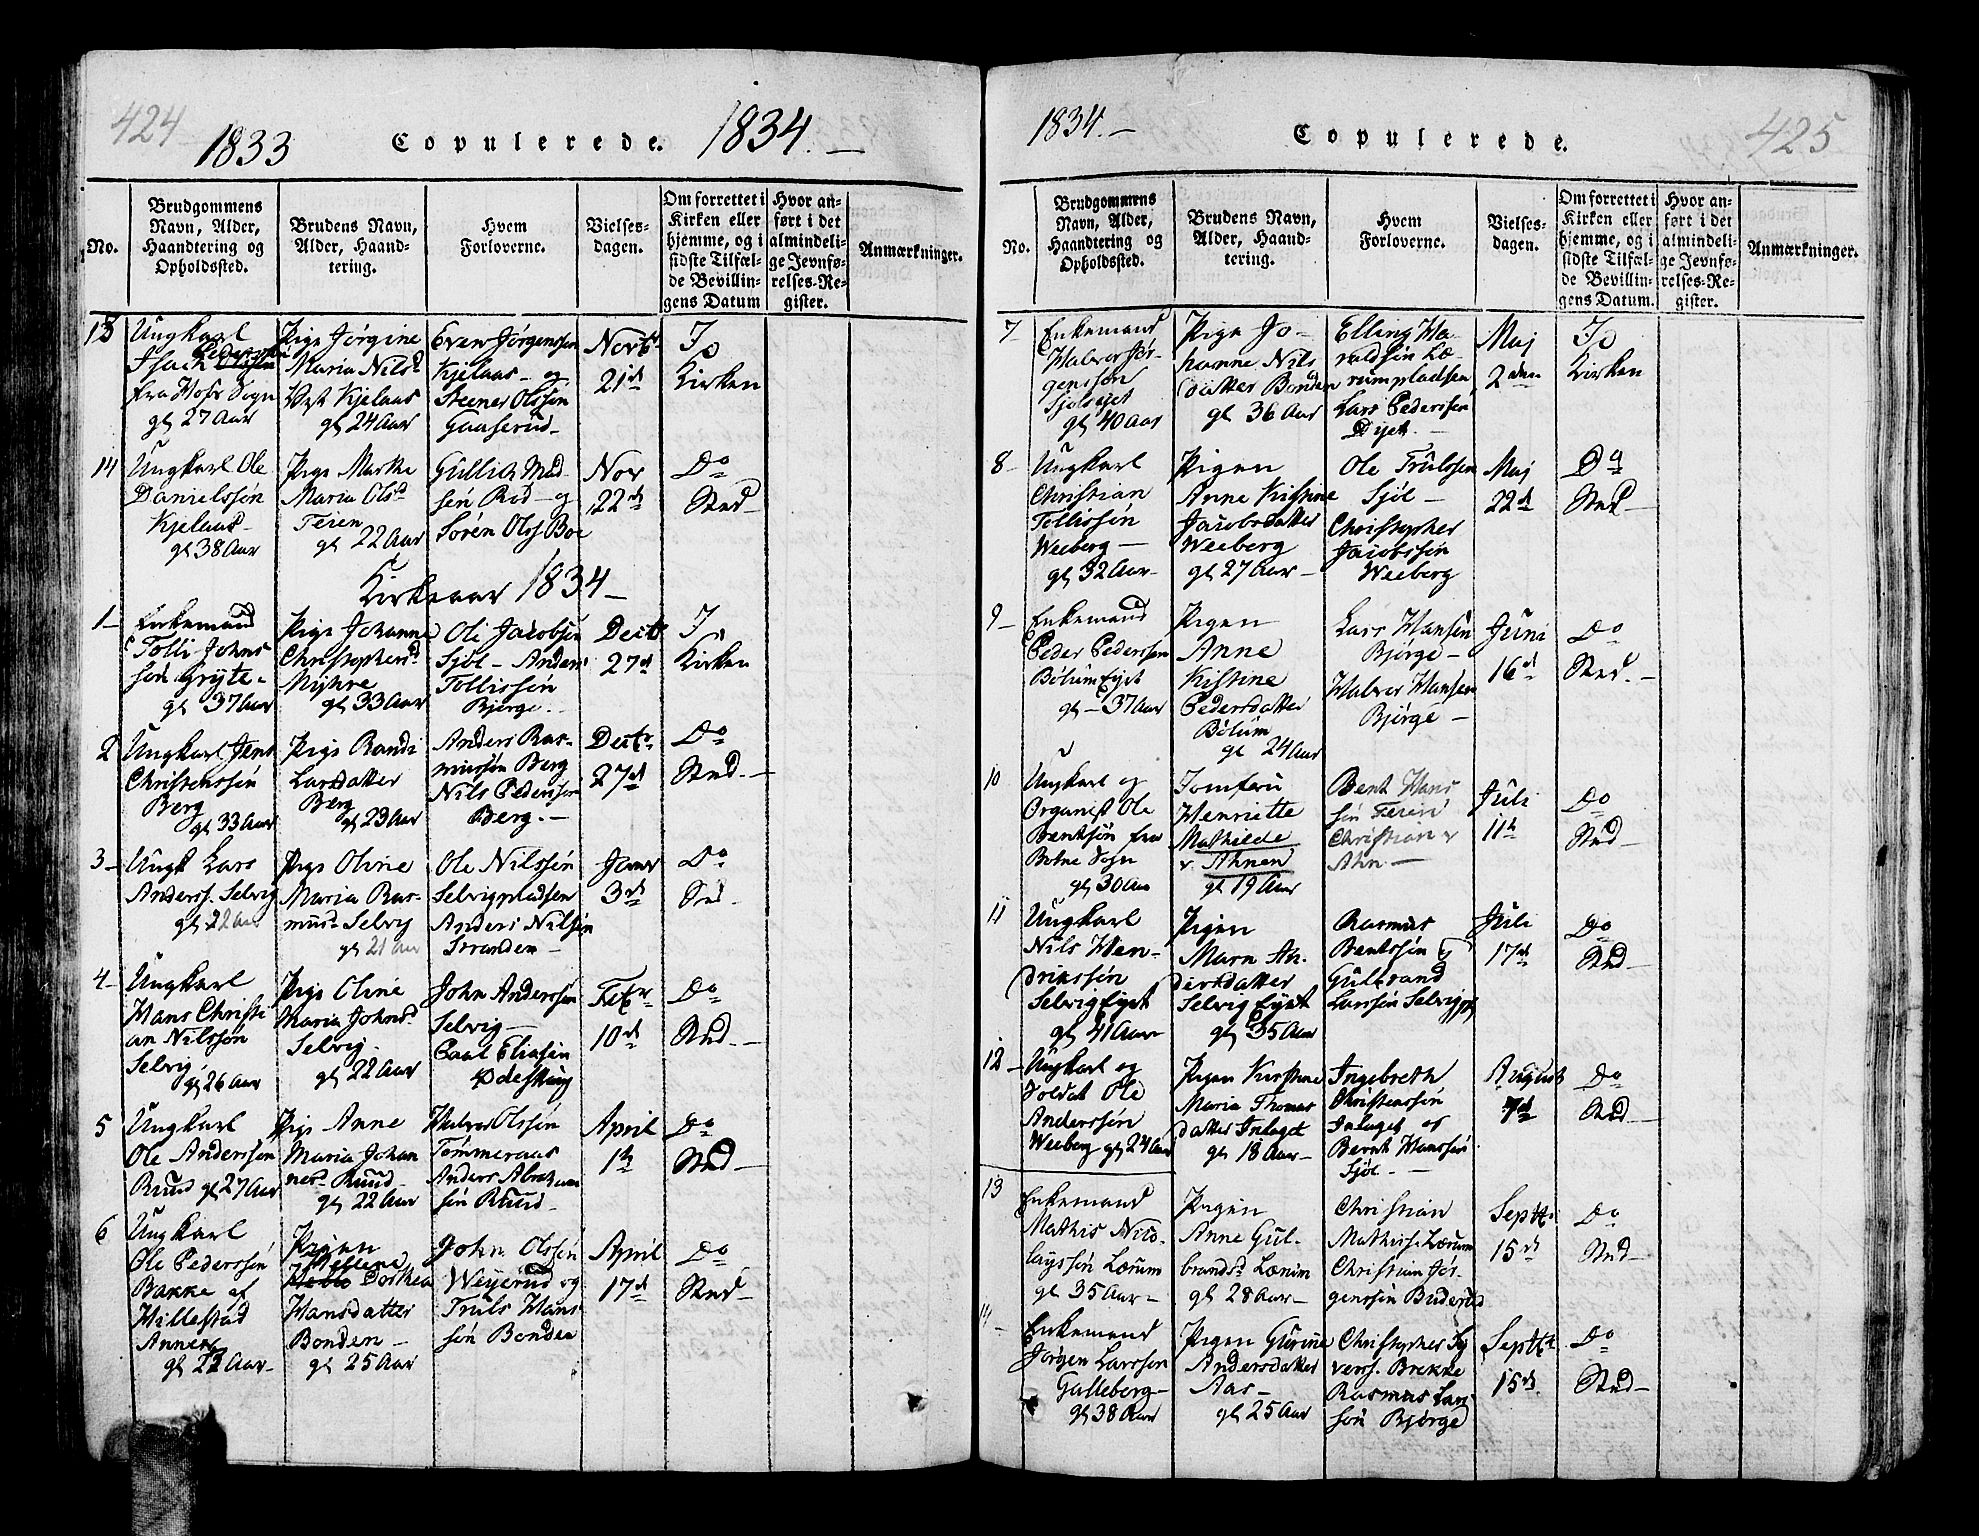 424
1833 Copulerede. 1834. —
No.
Brudgommens Navn, Alder, Haandtering og Opholdssted.
Brudens Navn, Alder, Haandtering.
Hvem Forloverne.
Vielsesdagen.
Om forrettet i Kirken eller hjemme, og i sidste Tilfælde Bevillingens Datum
Hvor anført i det almindelige Jevnførelses-Register.
Anmærkninger.
13
Ungkarl
Isach Pedersen
fra Hofs Sogn
gl 27 Aar
Pige Jørgine
Maria Nilsd
Vest Kjelaas
gl 24 Aar
Even Jørgenssen
Kjelaas og
Steener Olssøn
Gaaserud
Novbr
21d
I
Kirken
14
Ungkarl Ole
Danielssøn
Kjelaas
gl 38 Aar
Pige Marthe
Maria Olsd
Teien
gl 22 Aar
Gullich Mad
søn Rød og
Søren Olss Boe
Nov
22d
Do
Sted
Kirkeaar 1834 —
1
Enkemand
Tolli Johns
søn Gryte
gl 37 Aar
Pige Johanne
Christophersd
Myhre
gl 33 Aar
Ole Jacobsen
Sjøl — Anders
Tollissøn
Bjerge
Decbr
27d
I
Kirken
2
Ungkarl Jens
Christenssøn
Berg
gl 33 Aar
Pige Randi
Larsdatter
Berg
gl 23 Aar
Anders Ras-
mussøn Berg
Nils Pederssøn
Berg. —
Decbr
27d
Do
Sted. —
3
Ungk Lars
Anderss. Selvig
gl 22 Aar
Pige Oline
Maria Ras-
musd Selvig
gl 21 Aar
Ole Nilssøn
Selvigpladsen
Anders Nilssøn
Stranden —
Janr
3d
Do
Sted.
4
Ungkarl
Hans Christi-
an Nilssøn
Selvig.
gl 26 Aar
Pige Oline
Maria Johnsd
Selvig.
gl 22 Aar
John Anderssøn
Selvig —
Paal Eliasen
Febr
10d
Do
Sted. —
5
Ungkarl
Ole Anderssøn
Ruud gl 27 Aar
Pige Anne
Maria Johan
nesd Ruud
gl 22 Aar
Halvor Olssøn
Tømmeraas
Anders Abraham
søn Ruud
April
1te
Do
Sted —
6
Ungkarl
Ole Pederssøn
Bakke af
Hillestad
Annex
gl 22 Aar
Pigen
Dorthea
Hansdatter
Bonden —
gl 25 Aar
John Olssøn
Weyerud og
Truls Hans
søn Bonden
April
17d
Do
Sted —
1834. —
Copulerede.
425
No.
Brudgommens Navn, Alder, Haandtering og Opholdssted.
Brudens Navn, Alder, Haandtering.
Hvem Forloverne.
Vielsesdagen.
Om forrettet i Kirken eller hjemme, og i sidste Tilfælde Bevillingens Datum.
Hvor anført i det almindelige Jevnførelses-Register.
Anmærkninger.
7
Enkemand
Halvor Jør-
genssøn
gl 40 Aar
Pige Jo-
hanne Nils
datter Bonden
gl 36 Aar
Elling Ha-
raldsøn Læ-
rumpladsen
Lars Pederssøn
Maj
2den
I
Kirken
8
Ungkarl
Christian
Tollissøn
Weeberg —
gl 32 Aar
Pigen
Anne Kistine
Jacobsdatter
Weeberg
gl 27 Aar —
Ole Trulssen
Sjøl —
Christopher
Jacobssøn
Weeberg
Maj
22d
Do
Sted —
9
Enkemand
Peder Pederssøn
Bølum Eyet
gl — 37 Aar
Pigen
Anne
Kistine
Pedersdatter
Bølum
gl 24 Aar
Lars Hansen
Bjørge —
Halvor Hansen
Bjørge —
Juni
16d
Do
Sted. —
10
Ungkarl og
Organist Ole
Bentsøn fra
Botne Sogn
gl 30 Aar
Jomfru
Henriette
Mathilde
v. Ahnen
gl 19 Aar
Bent Hans
søn Teien
Christian v
Ahn. —
Juli
11te
Do
Sted —
11
Ungkarl
Nils Hen-
drikssøn
Selvig Eyet
gl 41 Aar
Pigen
Maren An-
dersdatter
Selvig Eyet
gl 35 Aar
Rasmus
Bentssøn og
Gulbrand
Larssen Selvigpl
Juli
17d
Do
Sted —
12
Ungkarl og
Soldat Ole
Anderssøn
Weeberg gl 24 Aar
Pigen Kirstine
Maria Thomas
datter Inlaget
gl 18 Aar —
Ingebreth
Christenssøn
Inlaget og
Bernt Hanssøn
Sjøl —
August
7d
Do
Sted —
13
Enkemand
Mathis Nico-
layssøn Lærum
gl 35 Aar —
Pigen
Anne Gul-
brandsd Lærum
gl 28 Aar —
Christian
Mathiss. Lærum
Christian Jør-
genssøn Budersted
Septbr
15d
Do
Sted —
14
Enkemand
Jørgen Larssøn
Galleberg —
gl 38 Aar
Pigen Gurine
Andersdatter
Aas —
gl 25 Aar
Christopher Sy
verss. Brekke
Rasmus Lar
søn Bjørge
Septbr
15d
Do
Sted —